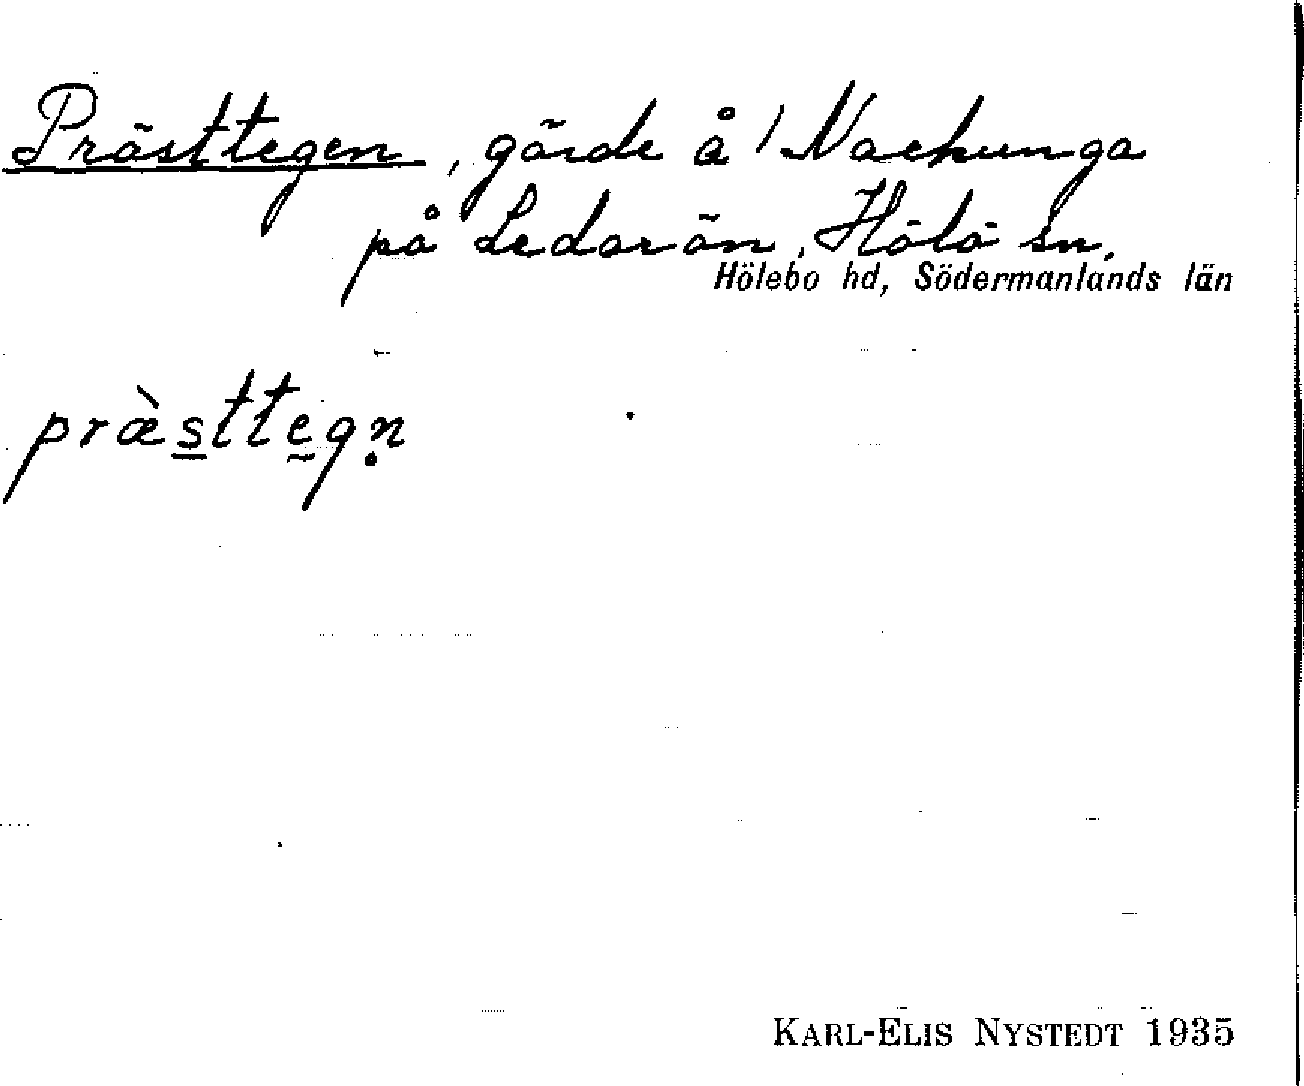 Prästtegen, gärde å 1 Nackunga
på Ledarön, Hölö sn,
Hölebo hd, Södermanlands län
præ̀s̲ttḛgn̥
KARL-ELIS NYSTEDT 1935